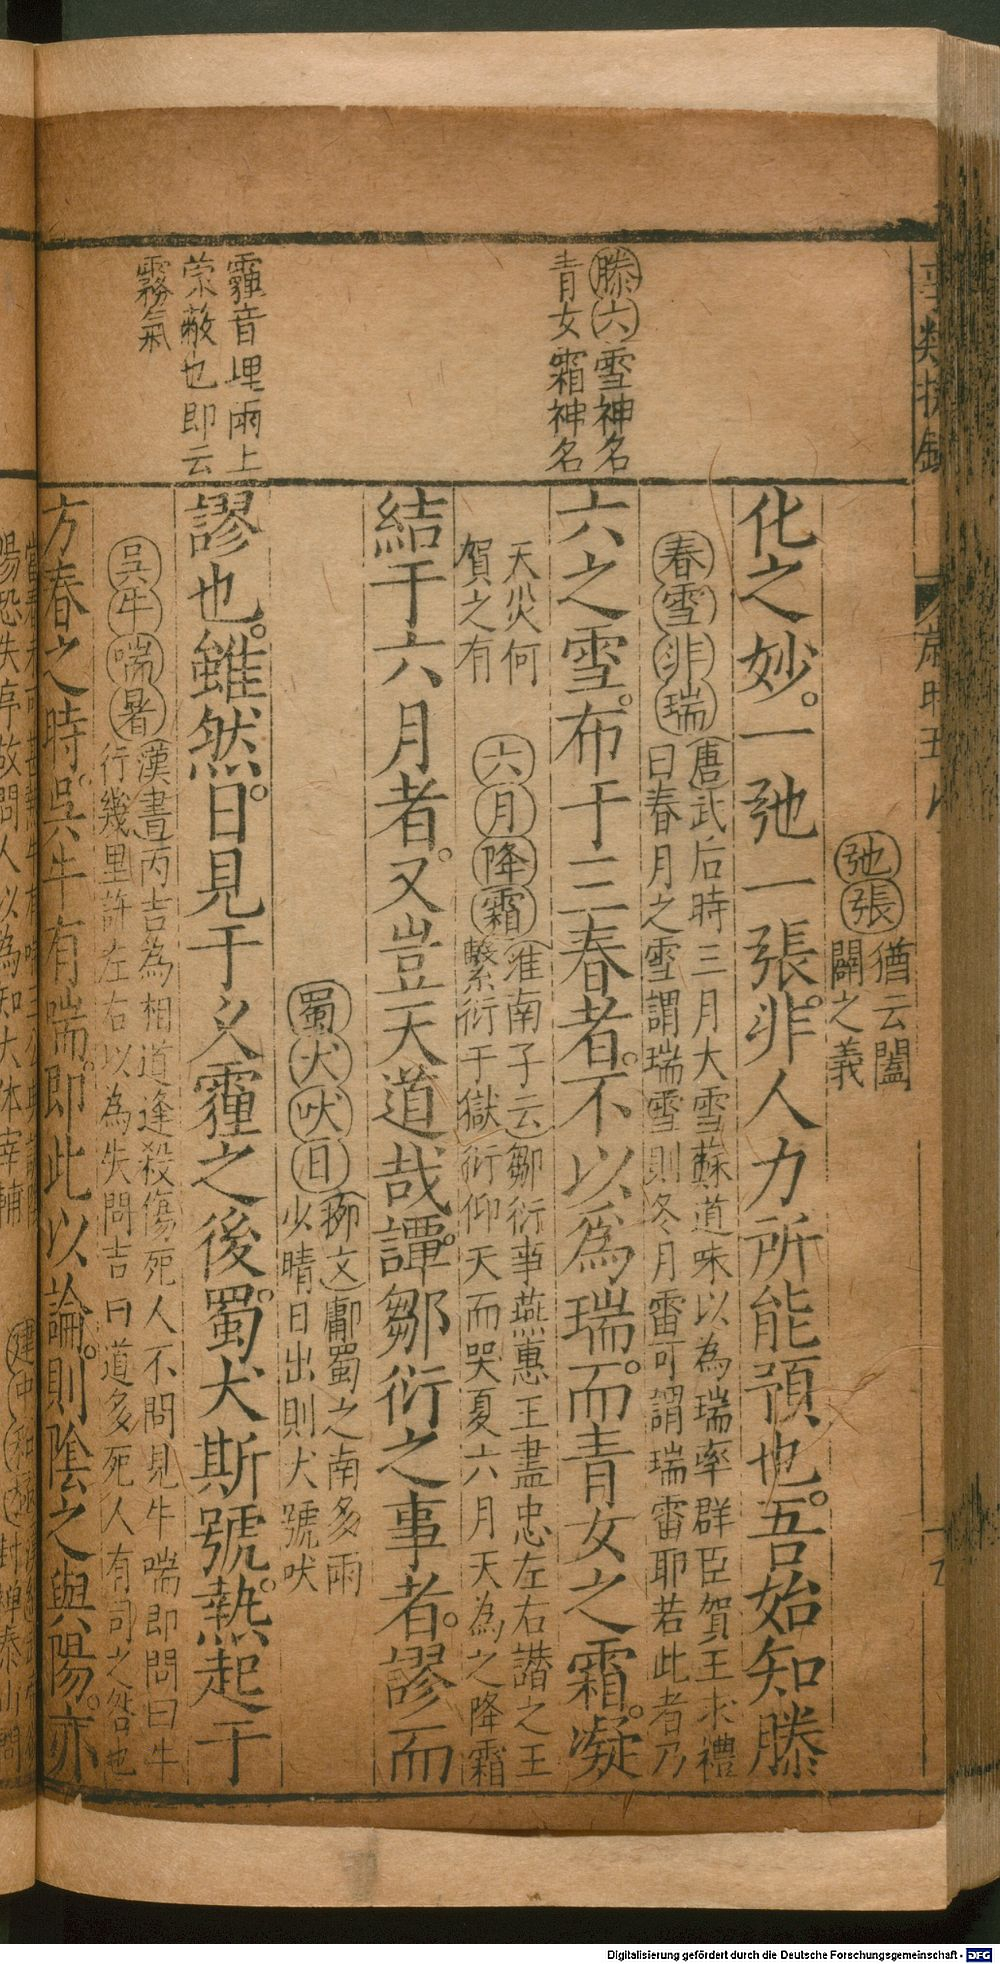 弛張猶云闔
闢之義
化之妙。一弛一張。非人力所能預也。吾始知滕
春雪非瑞唐武后時三月大雪蘇道味以為瑞率群臣賀王求禮
曰春月之雪謂瑞雪則冬月雷可謂瑞雷耶若此者乃
滕六雪神名
青女霜神名
六之雪。布于三春者。不以爲瑞。而青女之霜。凝
天災何
賀之有
六月降霜淮南子云鄒衍事燕惠王盡忠左右譖之王
繫衍于獄衍仰天而哭夏六月天為之降霜
結于六月者。又豈天道哉。譚鄒衍之事者。謬而
蜀犬吠日柳文鄘蜀之南多雨
少晴日出則犬號吠
霾音埋雨上
蒙蔽也即云
霧氣
謬也。雖然。日見于乂霾之後。蜀犬斯號。熱起于
吳牛喘暑漢書丙吉為相道逢殺傷死人不問見牛喘即問曰牛
行幾里許左右以為失問吉曰道多死人有司之咎也
方春之時。吳牛有喘。即此以論。則陰之與陽。亦
Digitalisierung gefördert durch die Deutsche Forschungsgemeinschaft - DFG